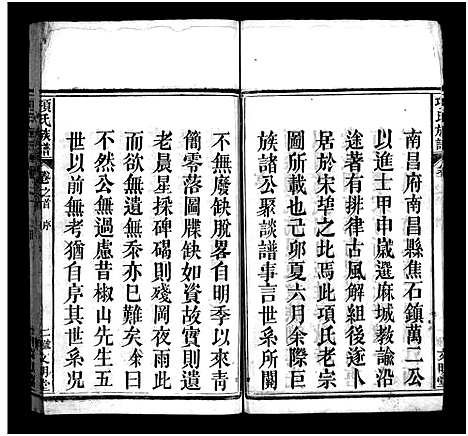 南昌府南昌縣焦石鎮萬二公
以進士甲申歲選麻城教諭沿
途著有排律古風解組後遂卜
居於宋埠之北馬此項氏老宗
圖所載也己卯夏六月余際巨
族諸公聚談譜事言世系所關
不無廢缺脫畧自明季以來青
簡零落圖牒缺如資故實則遺
老晨星採碑碣則殘岡夜雨此
而欲無遺無泰亦已難矣余曰
不然公無過慮昔椒山先生五
世以前無考猶自序其世系況
項氏族譜
卷之首
序